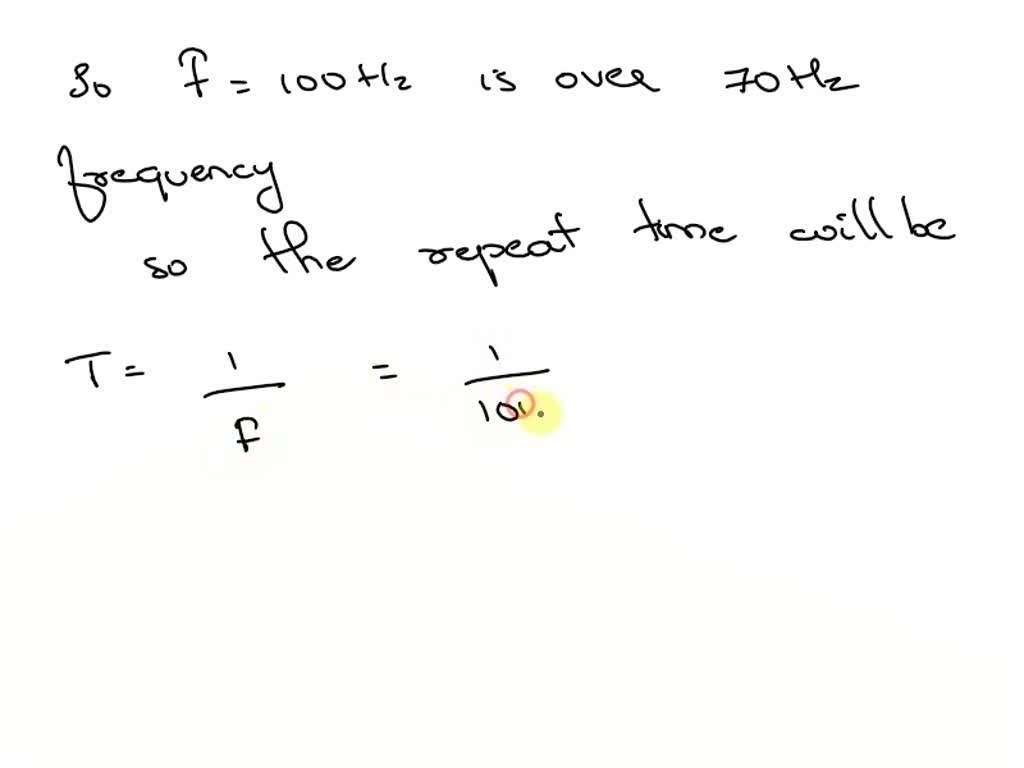 So F = 100 Hz is over 70 Hz
frequency
so the repeat time will be
T = 1/F = 1/10